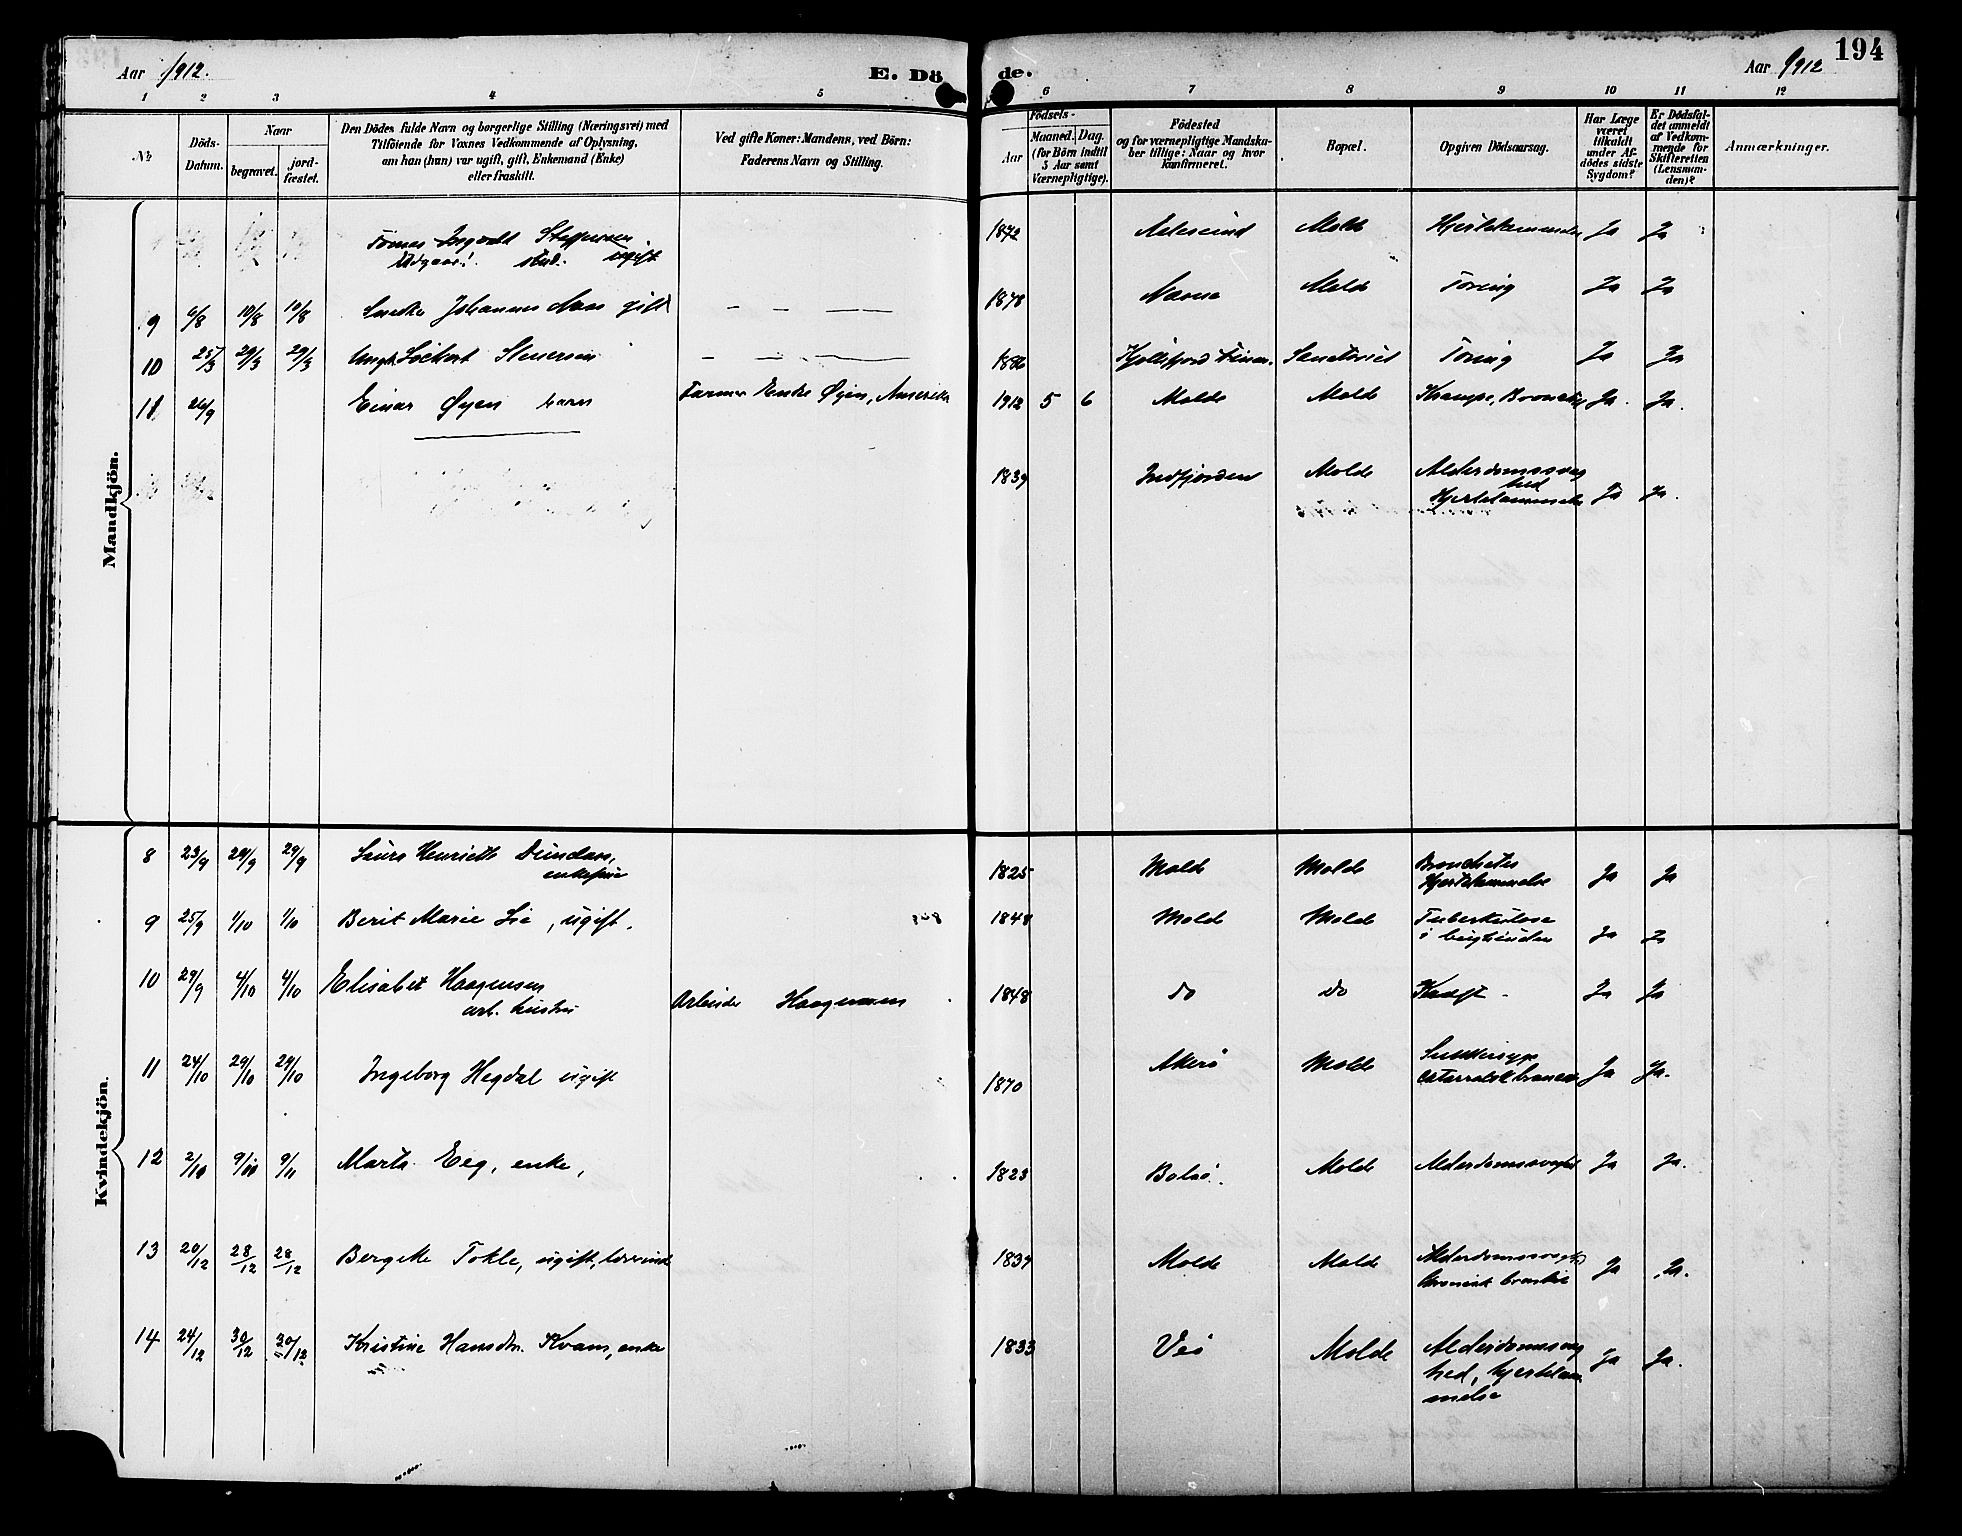 Aar 1912.
E. Dö
de.
Aar 1912
194
1 2 3 4 5 6 7 8 9 10 11 12
No
Döds-
Datum.
Naar
begravet.
jord-
fæstet.
Den Dödes fulde Navn og borgerlige Stilling (Næringsvei) med
Tilföiende for Voxnes Vedkommende af Oplysning,
om han (hun) var ugift, gift, Enkemand (Enke)
eller fraskilt.
Ved gifte Koner: Mandens, ved Börn:
Faderens Navn og Stilling.
Födsels-
Aar
Maaned. Dag.
(for Börn indtil
5 Aar samt
Værnepligtige).
Födested
og for værnepligtige Mandska-
ber tillige: Naar og hvor
konfirmeret.
Bopæl.
Opgiven Dödsaarsag.
Har Læge
været
tilkaldt
under Af-
dödes sidste
Sygdom?
Er Dödsfal-
det anmeldt
af Vedkom-
mende for
Skifteretten
(Lensman-
den)?
Anmærkninger.
Mandkjön.
Ingvald ugift
Udgaar! 1872 Molde Ja Ja
9 6/8 10/8 10/8 Johannes gift — — — 1878 Molde Tæring Ja Ja
10 25/3 29/3 29/3 — — — 1886 Tæring Ja Ja
11 26/9 Einar Øyen barn Farmer Øyen, Amerika 1912 5 6 Molde Molde Krampe, Ja. Ja.
1839 Indfjorden Molde Alderdomssvag
hed
Ja Ja.
Kvindekjön.
8 23/9 29/9 29/9 Henriette Dundas,
enkefrue 1825 Mold Molde Ja Ja
9 25/9 1/10 1/10 Berit Marie Lie, ugift. 1848 Molde Molde Tuberkulose
i Ja Ja
10 29/9 4/10 4/10 Elisabet Haagensen
arb. hustru Arbeider Haagensen 1848 do do Kræft Ja Ja
11 24/10 29/10 29/10 Ingeborg Hegdal ugift 1870 Akerø Molde Sukkersyge
Ja Ja.
12 2/10 9/ 9/11 Marta Eeg, enke, 1823 Bolsø. Molde Alderdomssvaghed Ja Ja.
13 20/12 28/12 28/12 Bergette Tokle, ugift, 1839 Molde Molde Alderdomssvaghed
Ja Ja.
14 24/12 30/12 30/12 Kristine Hansdtr. Kvam, enke 1833 Veø Molde Alderdomssvag
hed, hjertelam
melse Ja Ja.